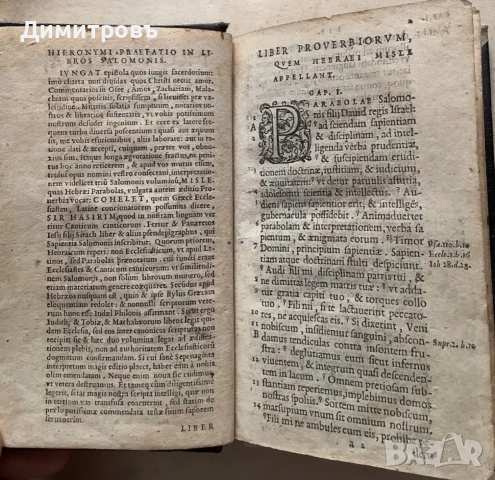 Димитров
HIERONYMI PRAEFATIO IN LI-
BROS SALOMONIS.
IVNGAT epistola quos iungit sacerdotium:
imò charta non diuidat quos Christi nectit amor.
Commentarios in Osee, Amos, Zachariam, Mala-
chiam quos poscitis, scripsissem, si licuisset præ va-
letudine. Mittitis solatia sumptuum, notarios nostros
& librarios sustentatis, vt vobis potissimum
nostrum desudet ingenium. Et ecce ex latere fre-
quens turba diuersa poscentium: quasi aut æquum
sit me vobis esurientibus, aliis laborare: aut in ra-
tione dati & accepti, cuiquam, præter vos, obno-
xius sim. Itaque longa ægrotatione fractus, ne
penitus hoc anno reticerem, & apud vos mutus essem,
tridui opus nomini vestro consecraui, interpretatio-
nem videlicet trium Salomonis voluminum, MISLE,
quas Hebræi Parabolas, vulgata autem æditio Prouer-
bia vocat: COHELET, quem Græcè Ecclesia-
sten, Latinè concionatorem possumus dicere:
SIR HASIRIM, quod in nostram linguam ver-
titur Canticum canticorum. Fertur & Panaretus
Iesu filij Sirach liber & alius pseudepigraphus, qui
Sapientia Salomonis inscribitur. Quorum priorem,
Hebraicum reperi: non Ecclesiasticum, vt apud La-
tinos, sed Parabolas prænotatum, cui iuncti erant
Ecclesiastes & Canticum canticorum: vt similitudinem
Salomonis, non solum numero librorum, sed etiam
materiarum genere coæquaret. Secundus apud
Hebræos nusquam est: quin & ipse stylus Græcam
eloquentiam redolet: & nonnulli scriptorum vete-
rum hunc esse Iudæi Philonis affirmant. Sicut ergo
Iudith, & Tobiæ, & Machabæorum libros legit qui-
dem Ecclesia, sed eos inter canonicas scripturas non
recipit: sic & hæc duo volumina legat ad ædificatio-
nem plebis, non ad authoritatem Ecclesiasticorum dogmatum
confirmandam. Si cui sanè Septuaginta
interpretum magis editio placet, habet eam à nobis
olim emendatam. Neque enim noua sic cudimus,
vt vetera destruamus. Et tamen cùm diligentissimè
legerit, sciat magis nostra intelligi, quæ non in
tertium vas transfusa coacuerint, sed statim de
prælo purissimæ commendata testæ suum saporem
seruauerint.
LIBER
LIBER PROVERBIORVM,
QVEM HEBRAEI MISLE
APPELLANT.
CAP. I.
PARABOLAE Salomo-
nis filij Dauid regis Israël:
ad sciendam sapientiam
& disciplinam, ad intel-
ligenda verba prudentiæ,
& suscipiendam erudi-
tionem doctrinæ, iustitiam, & iudicium,
& æquitatem: vt detur paruulis astutia,
adolescenti scientia & intellectus. Au-
diens sapiens sapientior erit, & intelligens,
gubernacula possidebit. Animaduertet
parabolam & interpretationem, verba sa-
pientum, & ænigmata eorum. Timor
Domini, principium sapientiæ. Sapien-
tiam atque doctrinam stulti despiciunt.
Audi fili mi disciplinam patris tui, &
ne dimittas legem matris tuæ: vt adda-
tur gratia capiti tuo, & torques collo
tuo. Fili mi, si te lactauerint peccato-
res, ne acquiescas eis. Si dixerint, Veni
nobiscum, insidiemur sanguini, abscon-
damus tendiculas contra insontem fru-
stra: deglutiamus eum sicut infernus
viuentem, & integrum quasi descenden-
tem in lacum. Omnem pretiosam sub-
stantiam reperiemus, implebimus domos
nostras spoliis. Sortem mitte nobiscum,
marsupium vnum sit omnium nostrum.
Fili mi ne ambules cum eis, prohibe pe-
a 2
Psa.110.b.10
Eccle.1.b.16
Iob 28.d.28.
Supr.1.b.10
BAZAR